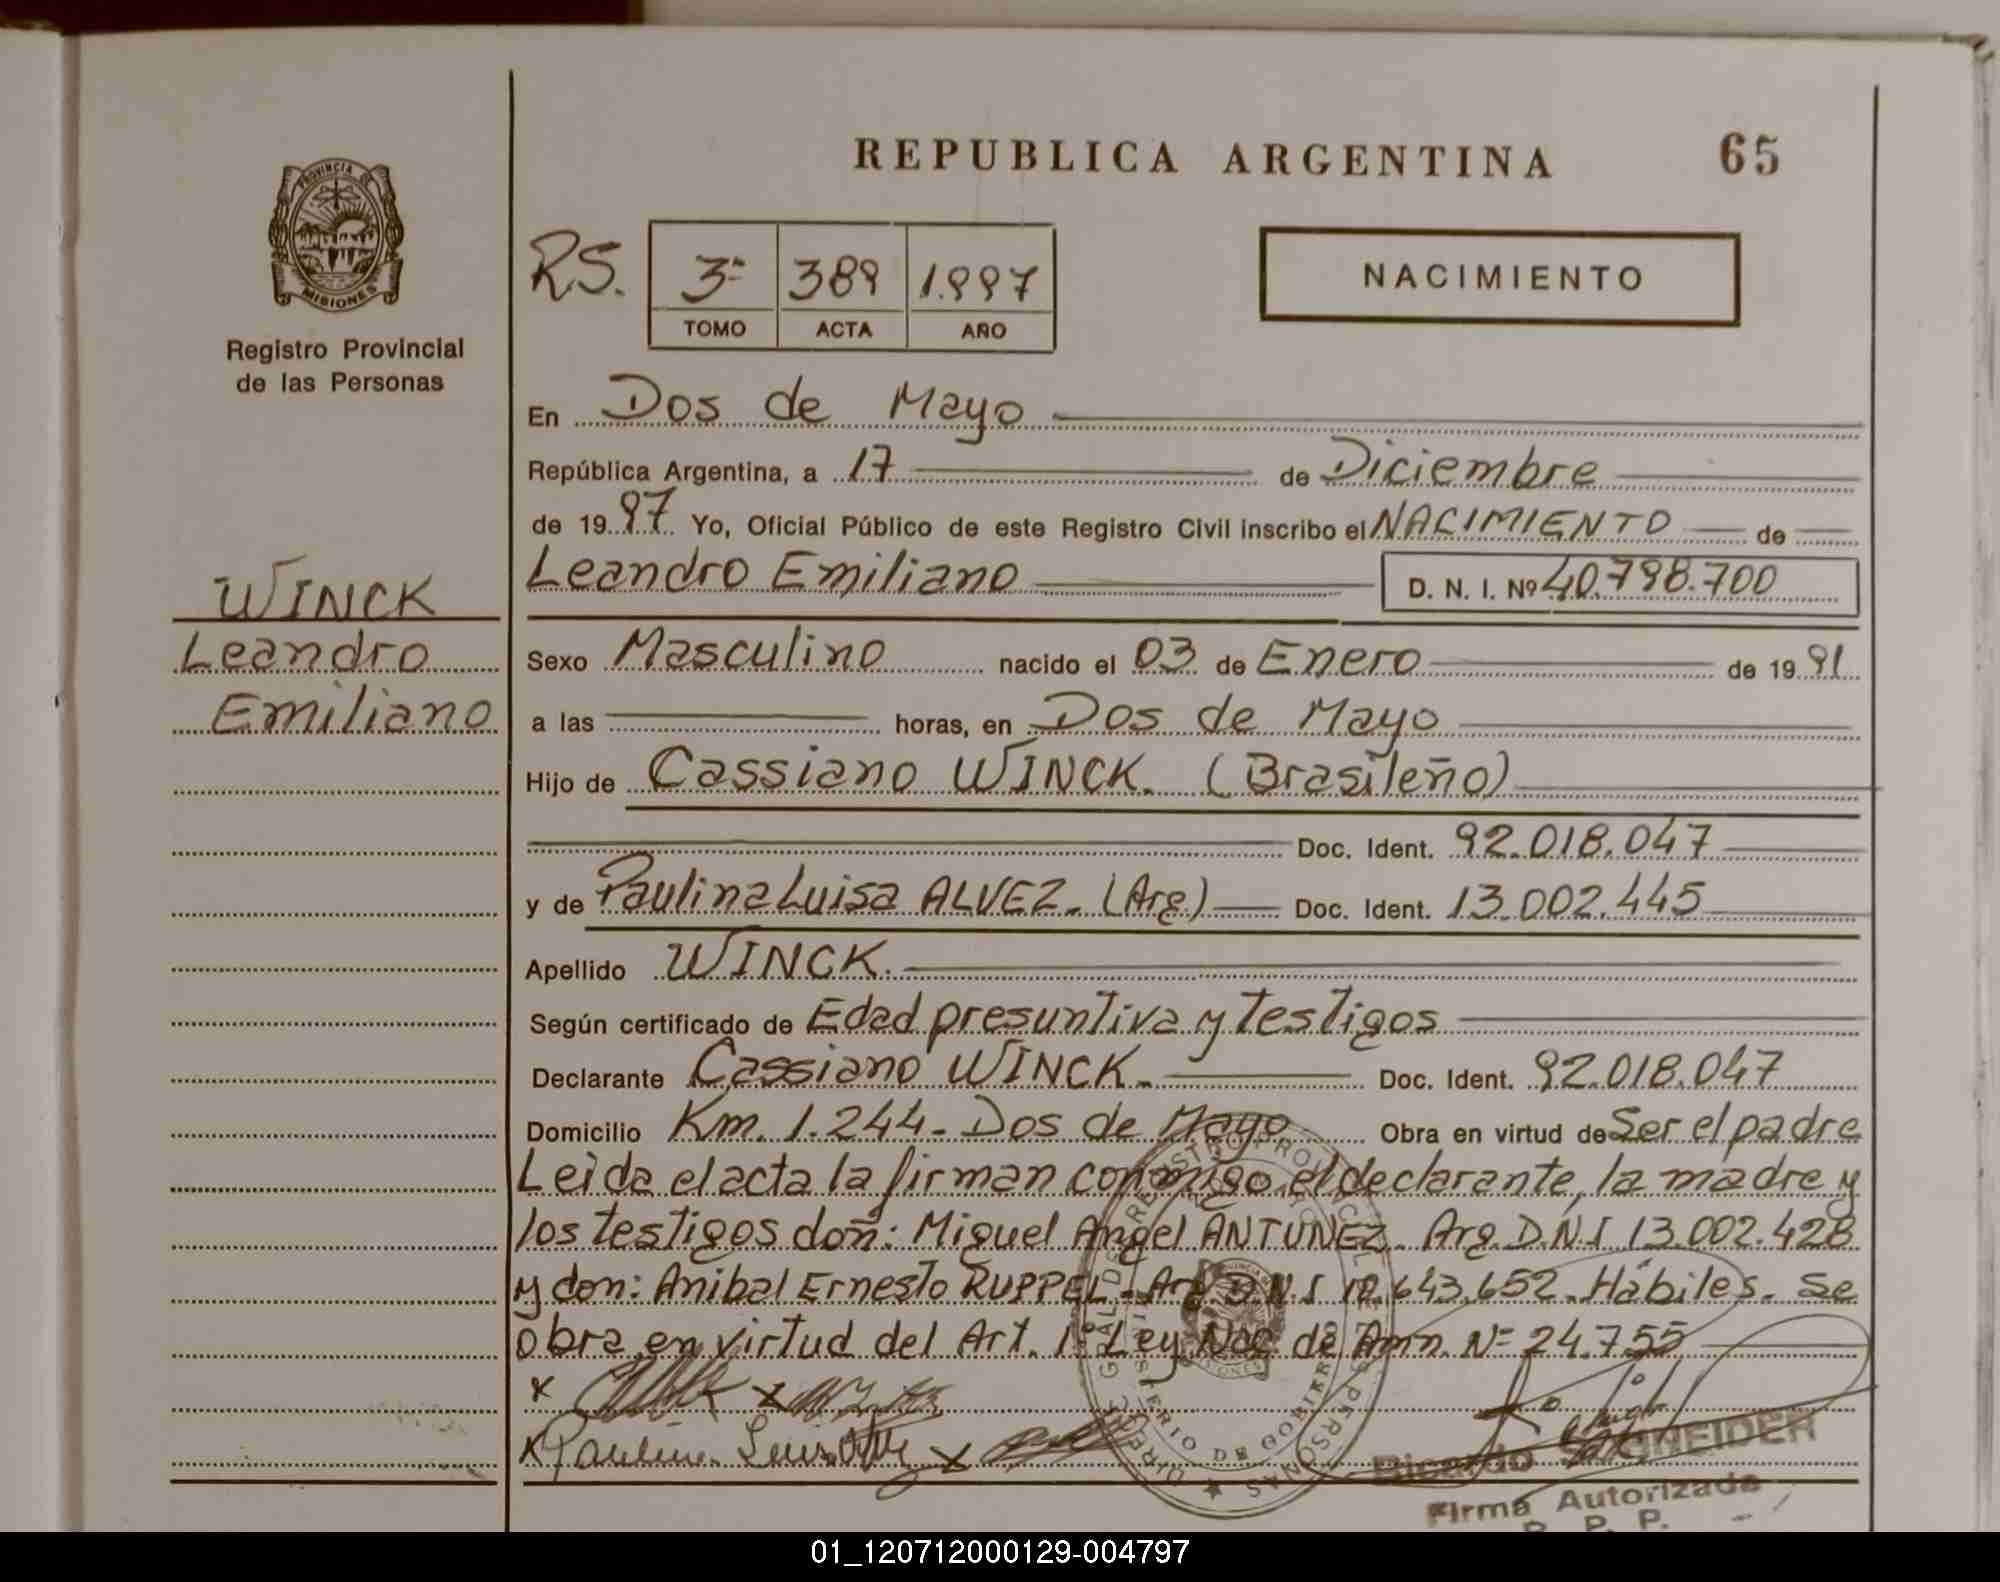 REPUBLICA ARGENTINA 65
PROVINCIA DE
MISIONES
Registro Provincial
de las Personas
RS. 3º 389 1.997
TOMO ACTA AÑO
NACIMIENTO
En Dos de Mayo
República Argentina, a 17 de Diciembre
de 1997 Yo, Oficial Público de este Registro Civil inscribo el NACIMIENTO de
Leandro Emiliano D. N. I. Nº 40.798.700
WINCK
Leandro
Emiliano
Sexo Masculino nacido el 03 de Enero de 1991
a las horas, en Dos de Mayo
Hijo de Cassiano WINCK. (Brasileño)
Doc. Ident. 92.018.047
y de Paulina Luisa ALVEZ. (Arg) Doc. Ident. 13.002.445
Apellido WINCK.
Según certificado de Edad presuntiva y testigos
Declarante Cassiano WINCK. Doc. Ident. 92.018.047
Domicilio Km. 1.244- Dos de Mayo Obra en virtud de Ser el padre
Leida el acta la firman conmigo el declarante, la madre y
los testigos don: Miguel Angel ANTUNEZ. Arg. D.N.I 13.002.428
y don: Anibal Ernesto RUPPEL. Arg D.N.I 643.652. Hábiles. Se
obra en virtud del Art. 1º Ley Nac de Amn. Nº 24.755
x x
x Paulina Luisa x
Ricardo SCHNEIDER
Firma Autorizada
R. P. P.
01_120712000129-004797